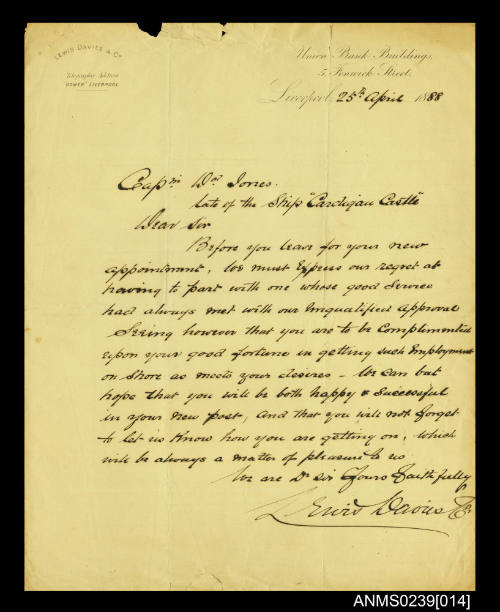 LEWIS DAVIES & Co
Telegraphic Address
"DOWER" LIVERPOOL.
Union Bank Buildings,
5, Fenwick Street,
Liverpool, 25th April 1888
Captn Wm Jones.
Late of the Ship "Cardigan Castle"
Dear Sir
Before you leave for your new
appointment, We must Express our regret at
having to part with one whose good Service
had always met with our Unqualified Approval
Seeing however that you are to be Complimented
upon your good fortune in getting such Employment
on Shore as meets your desires - We can but
hope that you will be both happy & Successful
in your new post, and that you will not forget
to let us Know how you are getting on, which
will be always a matter of pleasure to us
We are Dr Sir Yours Faithfully
Lewis Davies & Co
ANMS0239[014]